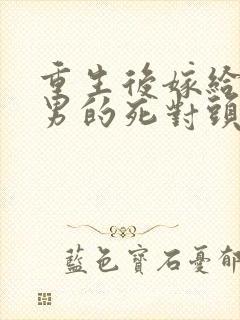 重生後嫁給
男的死對頭
藍色寶石憂郁